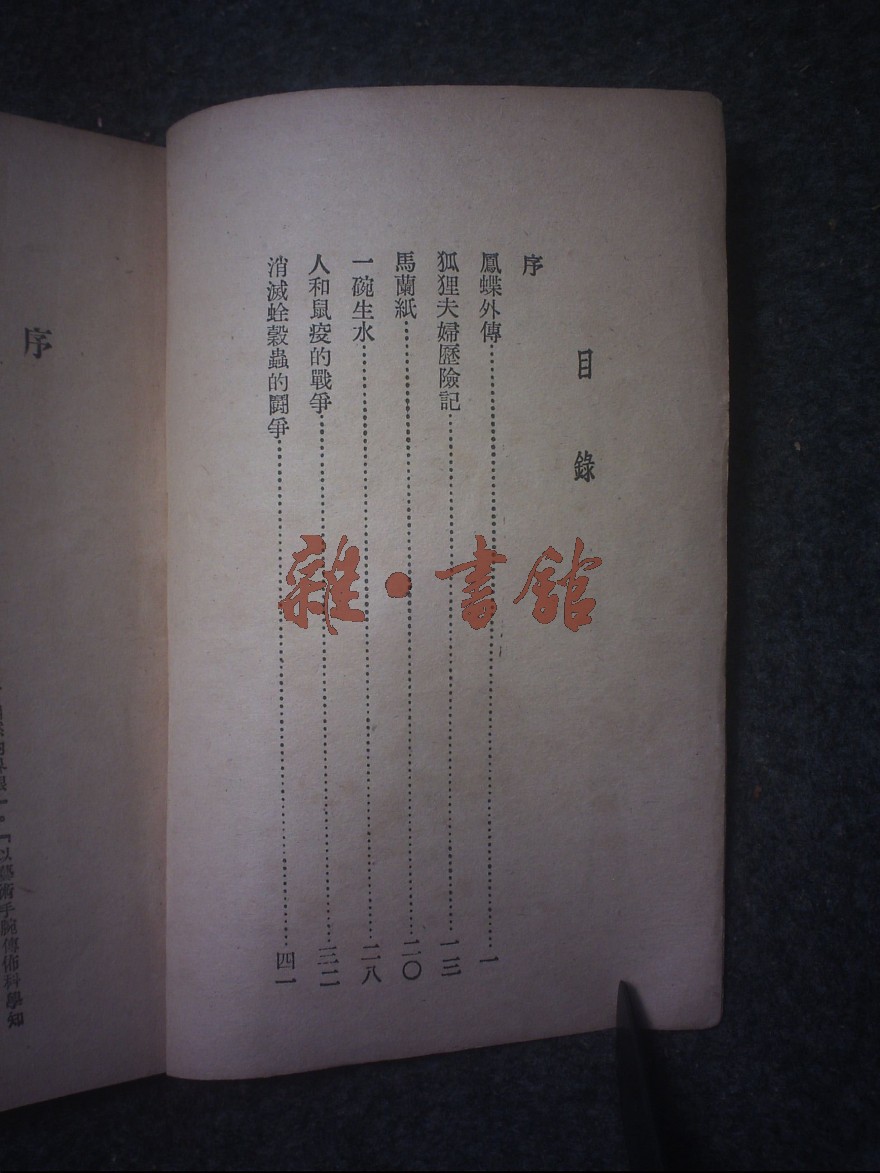 目錄
序
鳳蝶外傳……一
狐狸夫婦歷險記……一三
馬蘭紙……二〇
一碗生水……二八
人和鼠疫的戰爭……三二
消滅蛀穀蟲的鬪爭……四一
雜·書館
序
「以藝術手腕傳佈科學知